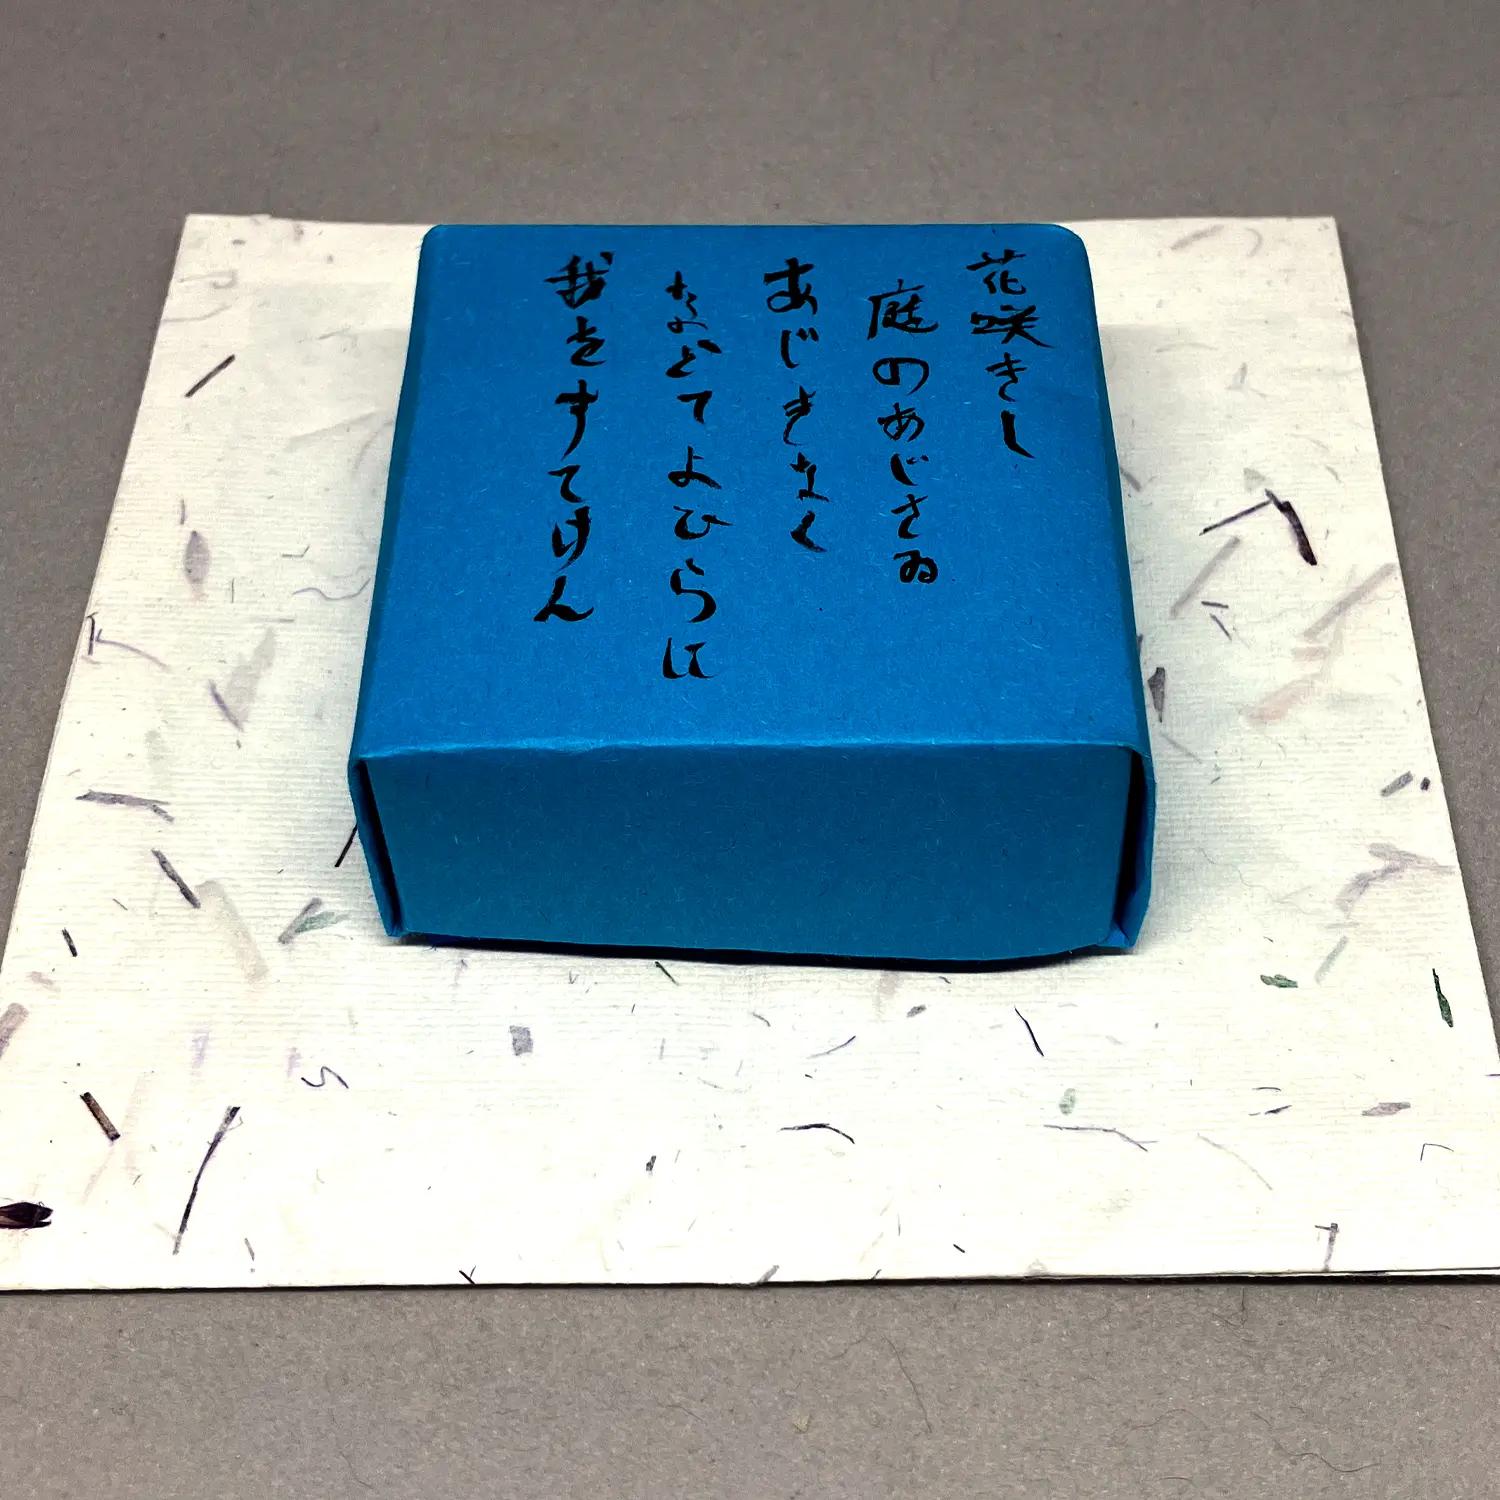 花咲きし
庭のあじさゐ
あじきなく
などてよひらに
我をすてけん